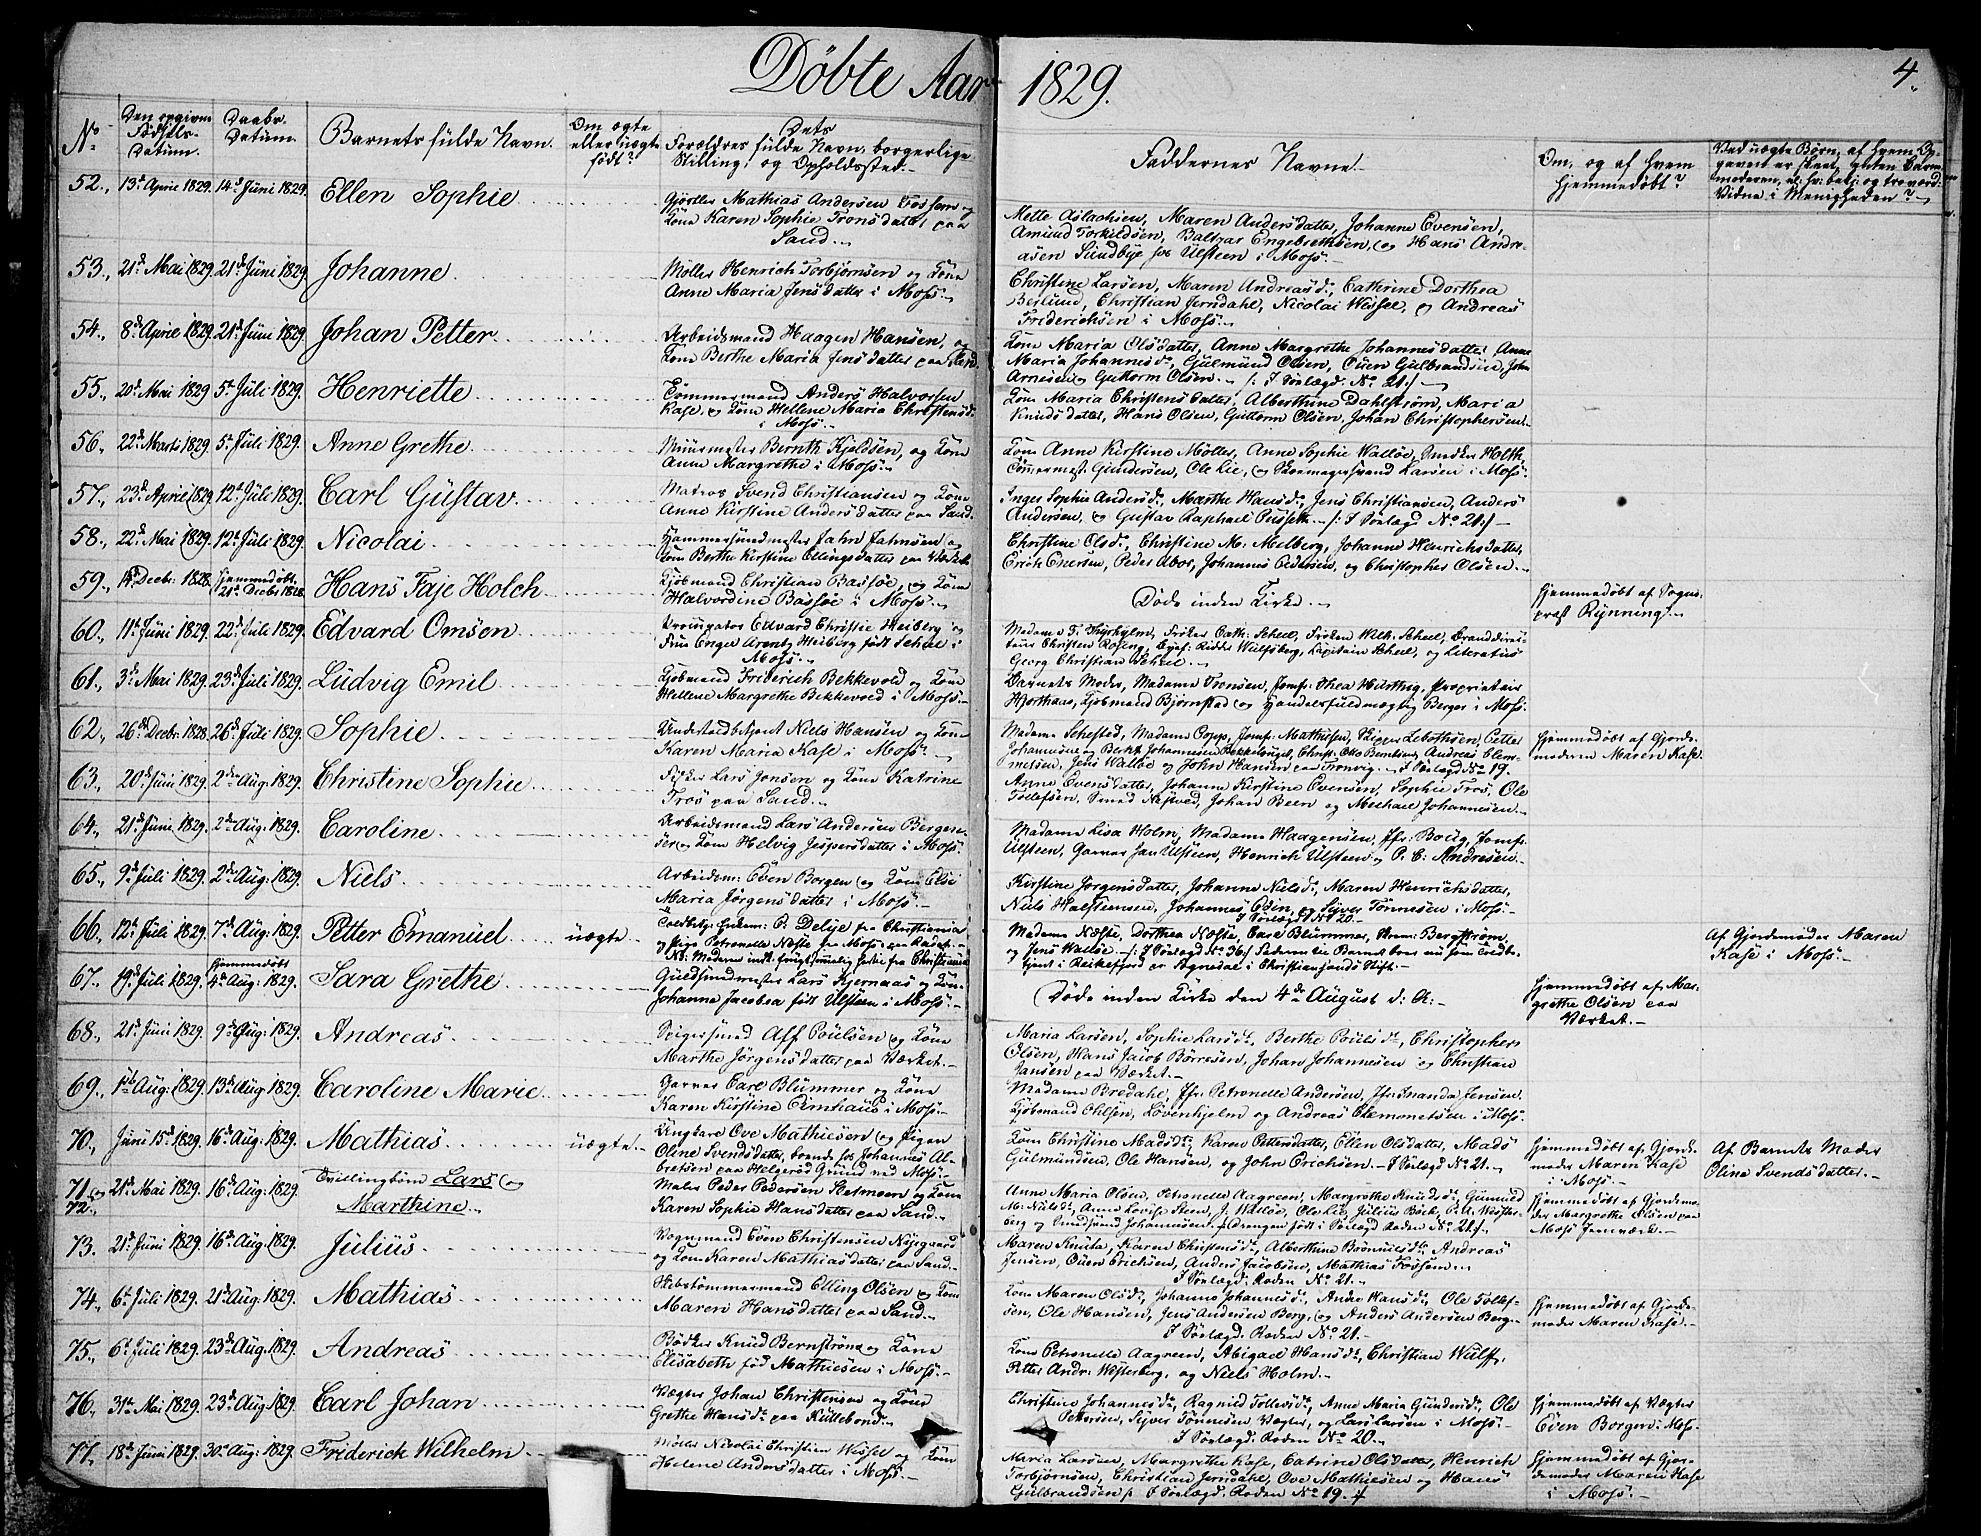 Döbte Aar 1829.
4.
No
Den opgivne Födsels-Datum.
Daabs-Datum.
Barnets fulde Navn.
Om ægte eller uægte födt?
Dets Forældres fulde Navn, borgerlige Stilling, og Opholdssted.
Faddernes Navne.
Om, og af hvem hjemmedöbt?
52., 13d April 1829. 14d Juni 1829. Ellen Sophie
Mathias Andersen Fossum og
Kone Karen Sophie Tronsdatter paa
Sand.
Mette Aslachsen, Maren Andersdatter, Johanne Evensen,
Amund Torkildsen, Baltzar Engebrethsen, og Hans Andre-
asen Sundbye hos Ulsteen i Moss.
53., 21d Mai 1829. 21d Juni 1829. Johanne
Möller Henrich Torbjornsen og Kone
Anne Maria Jensdatter i Moss.
Christine Larsen, Maren Andreasd., Cathrine Dorthea
Berlund, Christian Jerndahl, Nicolai Wessel, og Andreas
Friderichsen i Moss.
54., 8d April 1829. 21d Juni 1829. Johan Petter
Arbeidsmand Haagen Hansen, og
Kone Berthe Maria Jensdatter paa Sand.
Kone Maria Olsdatter, Anne Margrethe Johannesdatter, Anne
Maria Johannesd., Gulmund Olsen, Ouen Gulbrandsen, John
Arnesen og Guttorm Olsen. /: I Sölægd: No 21 :/
55., 20d Mai 1829. 5te Juli 1829. Henriette
Tömmermand Anders Halvorsen
Kase, og Kone Hellene Maria Christensd.
i Moss.
Kone Maria Christensdatter, Alberthine Dahlström, Maria
Knudsdatter, Hans Olsen, Guttorm Olsen, Johan Christophersen.
56., 22d Marti 1829. 5te Juli 1829. Anne Grethe
Muurmester Bernth Kjeldsen, og Kone
Anne Margrethe i Moss.
Kone Anne Kirstine Möller, Anne Sophie Wallöe, Snedker Holth,
Tömmermest. Gundersen, Ole Lie, og Skomagersvend Larsen i Moss.
57., 23d April 1829. 12te Juli 1829. Carl Gustav
Matros Svend Christiansen og Kone
Anne Kirstine Andersdatter paa Sand.
Inger Sophie Andersd., Marthe Hansd., Jens Christiansen, Anders
Andersen, og Gustav Raphael /: I Sölægd No 21 :/
58., 22d Mai 1829. 12te Juli 1829. Nicolai
Hammersmedmester Jahn Jahnsen og
Kone Berthe Kirstine Ellingsdatter paa Værket.
Christine Olsd., Christine M: Melberg, Johanne Henrichsdatter,
Erich Enersen, Peder Aboe, Johannes Pedersen, og Christopher Olsen.
59., 14d Decbr: 1828. Hjemmedöbt 21d Decbr 1828. Hans Faje Holch
Kjöbmand Christian Bassöe, og Kone
Halvordine Bassöe i Moss.
Döde inden Kirke.
Hjemmedöbt af Sogne-
præst Rynning.
60., 11te Juni 1829. 22d Juli 1829. Edvard Omsen
Edvard Christie Heiberg og
Frue Engel Arentz Heiberg födt Scheel i
Moss.
Madame F. Thyrholm, Fröken Cath: Scheel, Fröken Wilh: Scheel, Branddirec-
teur Christen Rosing, Ridder Wulfsberg, Capitain Scheel, og Literatus
Georg Christian Scheel.
61., 3d Mai 1829. 23d Juli 1829. Ludvig Emil
Kjöbmand Friderich Bekkevold og Kone
Hellene Margrethe Bekkevold i Moss.
Barnets Moder, Madame Tronsen, Jomf: Thea Hurttig, Proprietair
Hjorthaas, Kjöbmand Björnstad og Handelsfuldmægtig Berger i Moss.
62., 26d Decbr 1828. 26d Juli 1829. Sophie
Niels Hansen og Kone
Karen Maria Kase i Moss.
Madame Schested, Madame Copp, Jomf: Mathiesen, Skipper Letothsen, Petter
Johannesen og Bernt Johannesen, Christ: Otto Berntsen, Andreas Clem-
metsen, Jens Wallöe og John Hansen paa Tronvig. I Sölægd No 19.
Hjemmedöbt af Gjorde-
moderen Maren Kase.
63., 20d Juni 1829. 2den Aug: 1829. Christine Sophie
Fisker Lars Jonsen og Kone Katrine
Tros paa Sand.
Anne Evensdatter, Johanne Kirstine Evensen, Sophie Tros, Ole
Tollefsen, Johan Been og Michael Johannesen.
64., 21d Juni 1829. 2den Aug: 1829. Caroline
Arbeidsmand Lars Andersen Bergen-
ser og Kone Helvig Jespersdatter i Moss.
Madame Lisa Holm, Madame Haagensen, Jfr: Boug, Jomf:
Ulsteen, Garver Jan Ulsteen, Henrich Ulsteen og P. C. Andresen.
65., 9d Juli 1829. 2den Aug: 1829. Niels
Arbeidsm: Even Borgen og Kone Else
Maria Jörgensdatter i Moss.
Kirstine Jörgensdatter, Johanne Nielsd., Maren Henrichsdatter,
Niels Halstensen, Johannes Odin, og Syver Tönnesen i Moss.
I Sölægd No 20.
66., 12te Juli 1829. 7d Aug: 1829. Petter Emanuel
uægte
P. Delije fra Christiania
og Pige Petronelle Næste fra Moss
Madame Næste, Dorthea Næste, Carl Blummer, Bergström
og Jens Wallöe. /: I Sölægd No 36 :/ Faderen til Barnet
Af Gjordemoder Maren
Kase i Moss.
67., 19d Juli 1829. Hjemmedöbt 4de Aug: 1829. Sara Grethe
Guldsmedmester Lars Kjernaas og Kone
Johanne Jacobea födt Ulsteen i Moss.
Döde inden Kirke den 4de August d: A:
Hjemmedöbt af Mar-
grethe Olsen paa
Værket.
68., 21d Juni 1829. 9de Aug: 1829. Andreas
Alf Poulsen og Kone
Marthe Jörgensdatter paa Værket.
Maria Larsen, Sophie Larsd., Berthe Poulsd., Christopher
Olsen, Hans Jacob Börresen, Johan Johannesen og Christian
Jansen paa Værket.
69., 1ste Aug: 1829. 13de Aug 1829. Caroline Marie
Garver Carl Blummer og Kone
Karen Kirstine Omhaus i Moss.
Madame Bredahl, Jfr: Petronelle Andersen, Jfr: Jensen,
Kjöbmand Ohlsen, Lövenhjelm og Andreas Clemmetsen i Moss.
70., Juni 15d 1829. 16de Aug: 1829. Mathias
uægte
Ungkarl Ove Mathiesen og Pigen
Oline Svendsdatter, boende hos Johannes Al-
bretsen paa Helgeröd Grund ved Moss.
Kone Christine Madsd., Karen Pettersdatter, Ellen Olsdatter, Mads
Gulmundsen, Ole Hansen, og John Erichsen. I Sölægd No 21.
Hjemmedöbt af Gjorde-
moder Maren Kase
i Moss.
Af Barnets Moder
Oline Svendsdatter.
71., og 72., 21d Mai 1829. 16de Aug: 1829. Tvillingbörn Lars og
Marthine.
Maler Peder Pedersen Stetmoen og Kone
Karen Sophie Hansdatter paa Sand.
Anne Maria Olsen, Petronelle Aagreen, Margrethe Knudsd., Gunnild
M: Nielsd., Anne Lovise Steen, J. Wallöe, Ole Lie, Julius Böck, Pett: Wester-
berg og Smedsvend Johannesen.
Hjemmedöbt af Gjordemo-
der Margrethe Olsen paa
Moss Jernværk.
73. 21d Juni 1829. 16de Aug: 1829. Julius
Vognmand Even Christensen Nygaard
og Kone Karen Mathiasdatter paa Sand.
Maren Knuta, Karen Christensd., Alberthine Andreas
Jensen, Ouen Erichsen, Anders Jacobsen, Mathias Fossum.
I Sölægd: Roden No 21.
74., 6te Juli 1829. 21d Aug: 1829. Mathias
Skibstömmermand Elling Olsen og Kone
Maren Hansdatter paa Sand.
Kone Maren Olsd., Johanne Johannesd., Andre Hansd., Ole Tollef-
sen, Ole Hansen, Jens Andersen Berg, og Anders Andersen Berg.
I Sölægd: Roden No 21.
Hjemmedöbt af Gjorde-
moder Maren Kase.
75., 6te Juli 1829. 23de Aug: 1829. Andreas
Bödker Knud Bernström og Kone
Elisabeth föd Mathiesen i Moss.
Kone Petronelle Aagreen, Abigael Hansd., Christian Wulf,
Petter Andr: Westerberg, og Niels Holm.
76., 31te Mai 1829. 23de Aug 1829. Carl Johan
Vægter Johan Christensen og Kone
Grethe Hansd. paa Kullebond.
Christine Johannesd., Ragnild Tollevsd., Anne Maria Gundersd., Ole
Pettersen, Syver Tönnesen Vægter, og Lars Larsen i Moss.
I Sölægd: Roden No 20.
Hjemmedöbt af Vægter
Even Borgen i Moss.
77., 18de Juni 1829. 30te Aug: 1829. Friderick Wilhelm
Möller Nicolai Christian Wessel og Kone
Helene Andersdatter i Moss.
Maria Larsen, Margrethe Kase, Catrine Olsdatter, Henrich
Torbjörnsen, Christian Jerndahl, Ove Mathiesen og Hans
Gulbrandsen /: I Sölægd: Roden No 19.
Hjemmedöbt af Gjor-
demoder Maren Kase
i Moss.